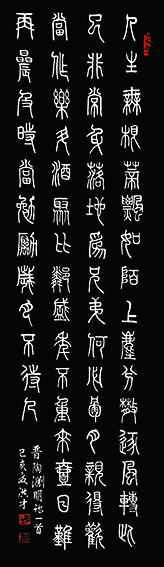 人生無根蒂飄如陌上塵分散逐風轉此
已非常身落地為兄弟何必骨肉親得歡
當作樂斗酒聚比鄰盛年不重來壹日難
再晨及時當勉勵歲月不待人
晉陶淵明詩一首
己亥